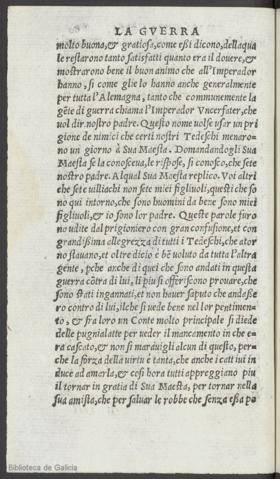 LA GVERRA
molto buona, & gratiosa, come eßi dicono, della qua
le restarono tanto satisfatti quanto era il douere, &
mostrarono bene il buon animo che all'Imperador
hanno, si come glie lo hanno anche generalmente
per tutta l'Alemagna, tanto che communemente la
gēte di guerra chiama l'Imperador Vncersfater, che
uol dir nostro padre. Questo nome uolse usar un pri
gione de nimici che certi nostri Tedeschi menaro-
no un giorno à Sua Maesta. Domandandogli Sua
Maesta se la conosceua, le rispose, si conosco, che sete
nostro padre. Al qual Sua Maesta replico. Voi altri
che sete uilliachi non sete miei figliuoli, questi che so
no qui intorno, che sono huomini da bene sono miei
figliuoli, & io sono lor padre. Queste parole furo
no udite dal prigioniero con gran confusione, et con
grandißima allegrezza di tutti i Tedeschi, che ator
no stauano, et oltre diciò è bē uoluto da tutta l'altra
gente, pche anche di quei che sono andati in questa
guerra cōtra di lui, li piu si offeriscono prouare, che
sono stati ingannati, et non hauer saputo che andasse
ro contro di lui, ilche si uede bene nel lor pentimen-
to, & fra loro un Conte molto principale si diede
delle pugnialatte per ueder il mancamento in che e-
ra cascato, & non si marauigli alcun di questo, per-
che la forza della uirtu è tanta, che anche i catt iui in
duce ad amarla, & cosi hora tutti appreggiano piu
il tornar in gratia di Sua Maesta, per tornar nella
sua amista, che per saluar le robbe che senza essa po
Biblioteca de Galicia